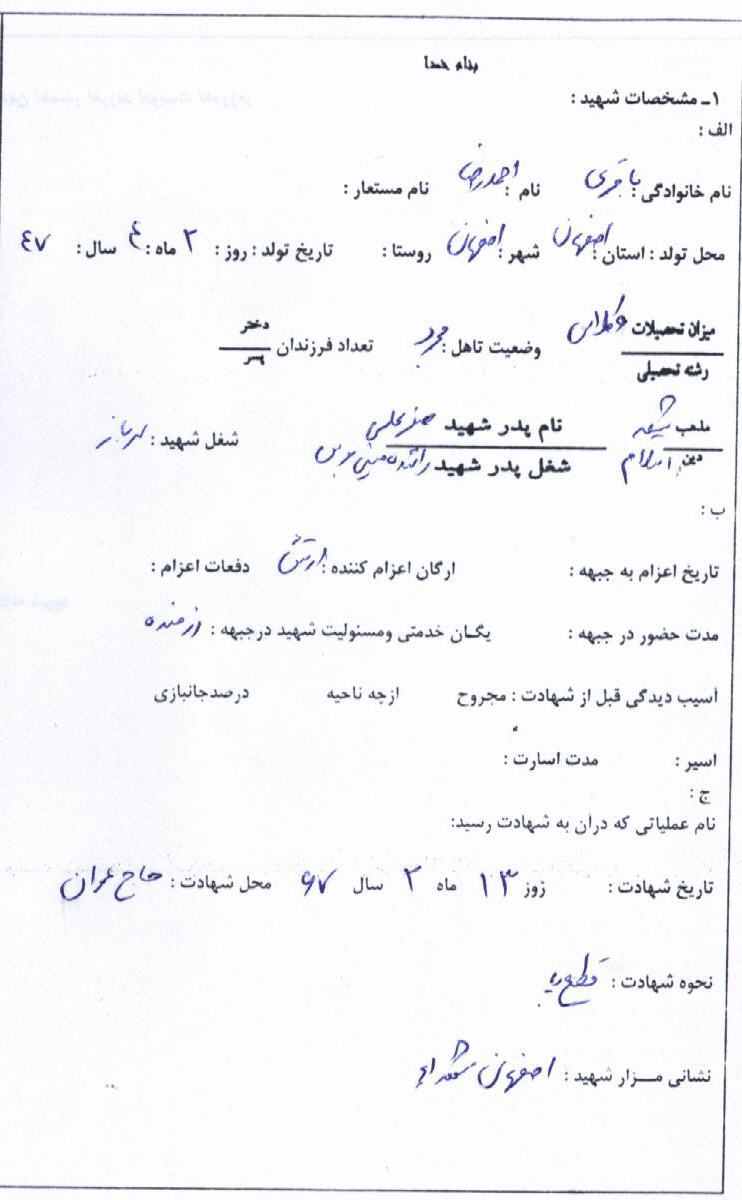 بنام خدا
۱ـ مشخصات شهید :
الف :
نام خانوادگی : باقری نام : احمدرضا نام مستعار :
محل تولد : استان : اصفهان شهر : اصفهان روستا : تاریخ تولد : روز : ۲ ماه : ٤ سال : ٤٧
میزان تحصیلات کلاس وضعیت تاهل : مجرد تعداد فرزندان دختر
رشته تحصیلی پسر
مذهب شیعه نام پدر شهید صفرعلی شغل شهید : سرباز
دین اسلام شغل پدر شهید راننده مینی بوس
ب :
تاریخ اعزام به جبهه : ارگان اعزام کننده : ارتش دفعات اعزام :
مدت حضور در جبهه : یگان خدمتی ومسئولیت شهید درجبهه : رزمنده
آسیب دیدگی قبل از شهادت : مجروح ازچه ناحیه درصدجانبازی
اسیر : مدت اسارت :
ج :
نام عملیاتی که دران به شهادت رسید:
تاریخ شهادت : روز ۱۳ ماه ۲ سال ۶۷ محل شهادت : حاج عمران
نحوه شهادت : قطع
نشانی مـــزار شهید : اصفهان